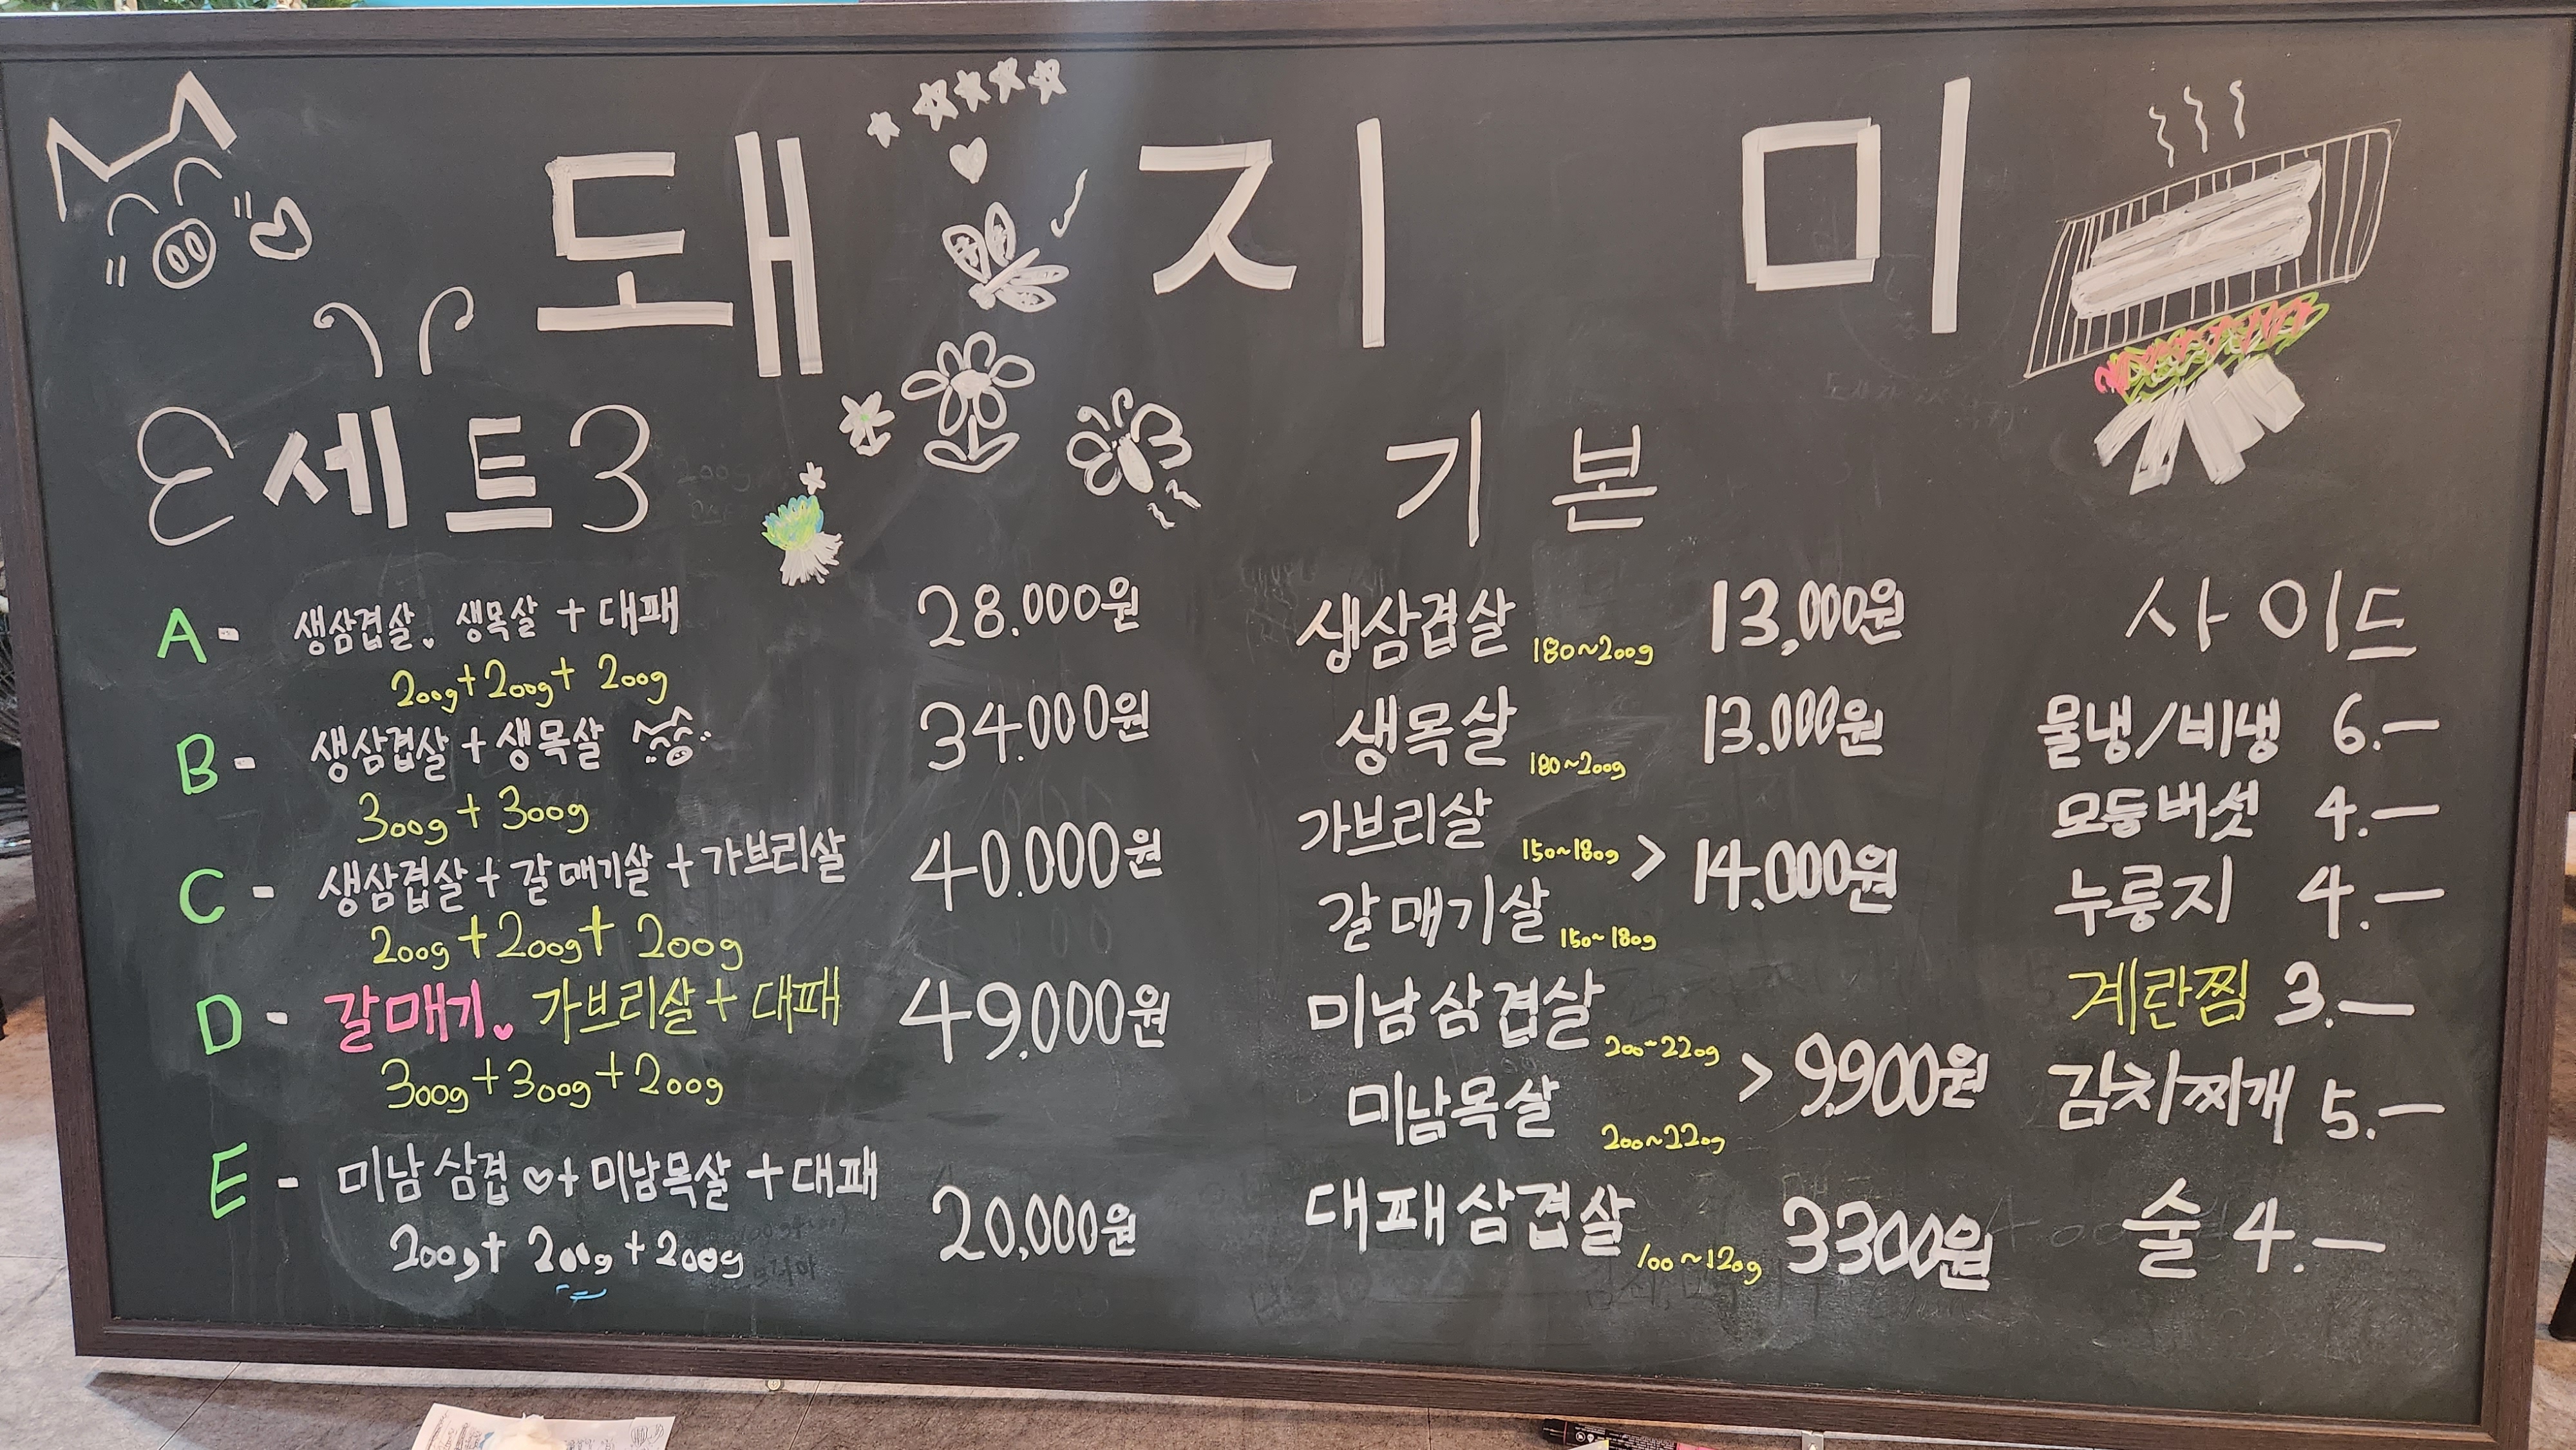 돼지미
세트
A- 생삼겹살. 생목살 + 대패 28.000원
200g+200g+ 200g
B- 생삼겹살 + 생목살 34.000원
300g + 300g
C - 생삼겹살 + 갈매기살 + 가브리살 40.000원
200g+200g+ 200g
D - 갈매기. 가브리살 + 대패 49.000원
300g+300g+200g
E - 미남 삼겹 ♡+ 미남목살 + 대패 20,000원
200g+ 200g + 200g
기본
생삼겹살 180~200g 13,000원
생목살 180~200g 13.000원
가브리살 150~180g
> 14.000원
갈매기살 150~180g
미남삼겹살 200~220g
> 9,900원
미남목살 200~220g
대패삼겹살 100~120g 3300원
사이드
물냉/비냉 6.—
모둠버섯 4.—
누룽지 4.—
계란찜 3.—
김치찌개 5.—
술 4.—